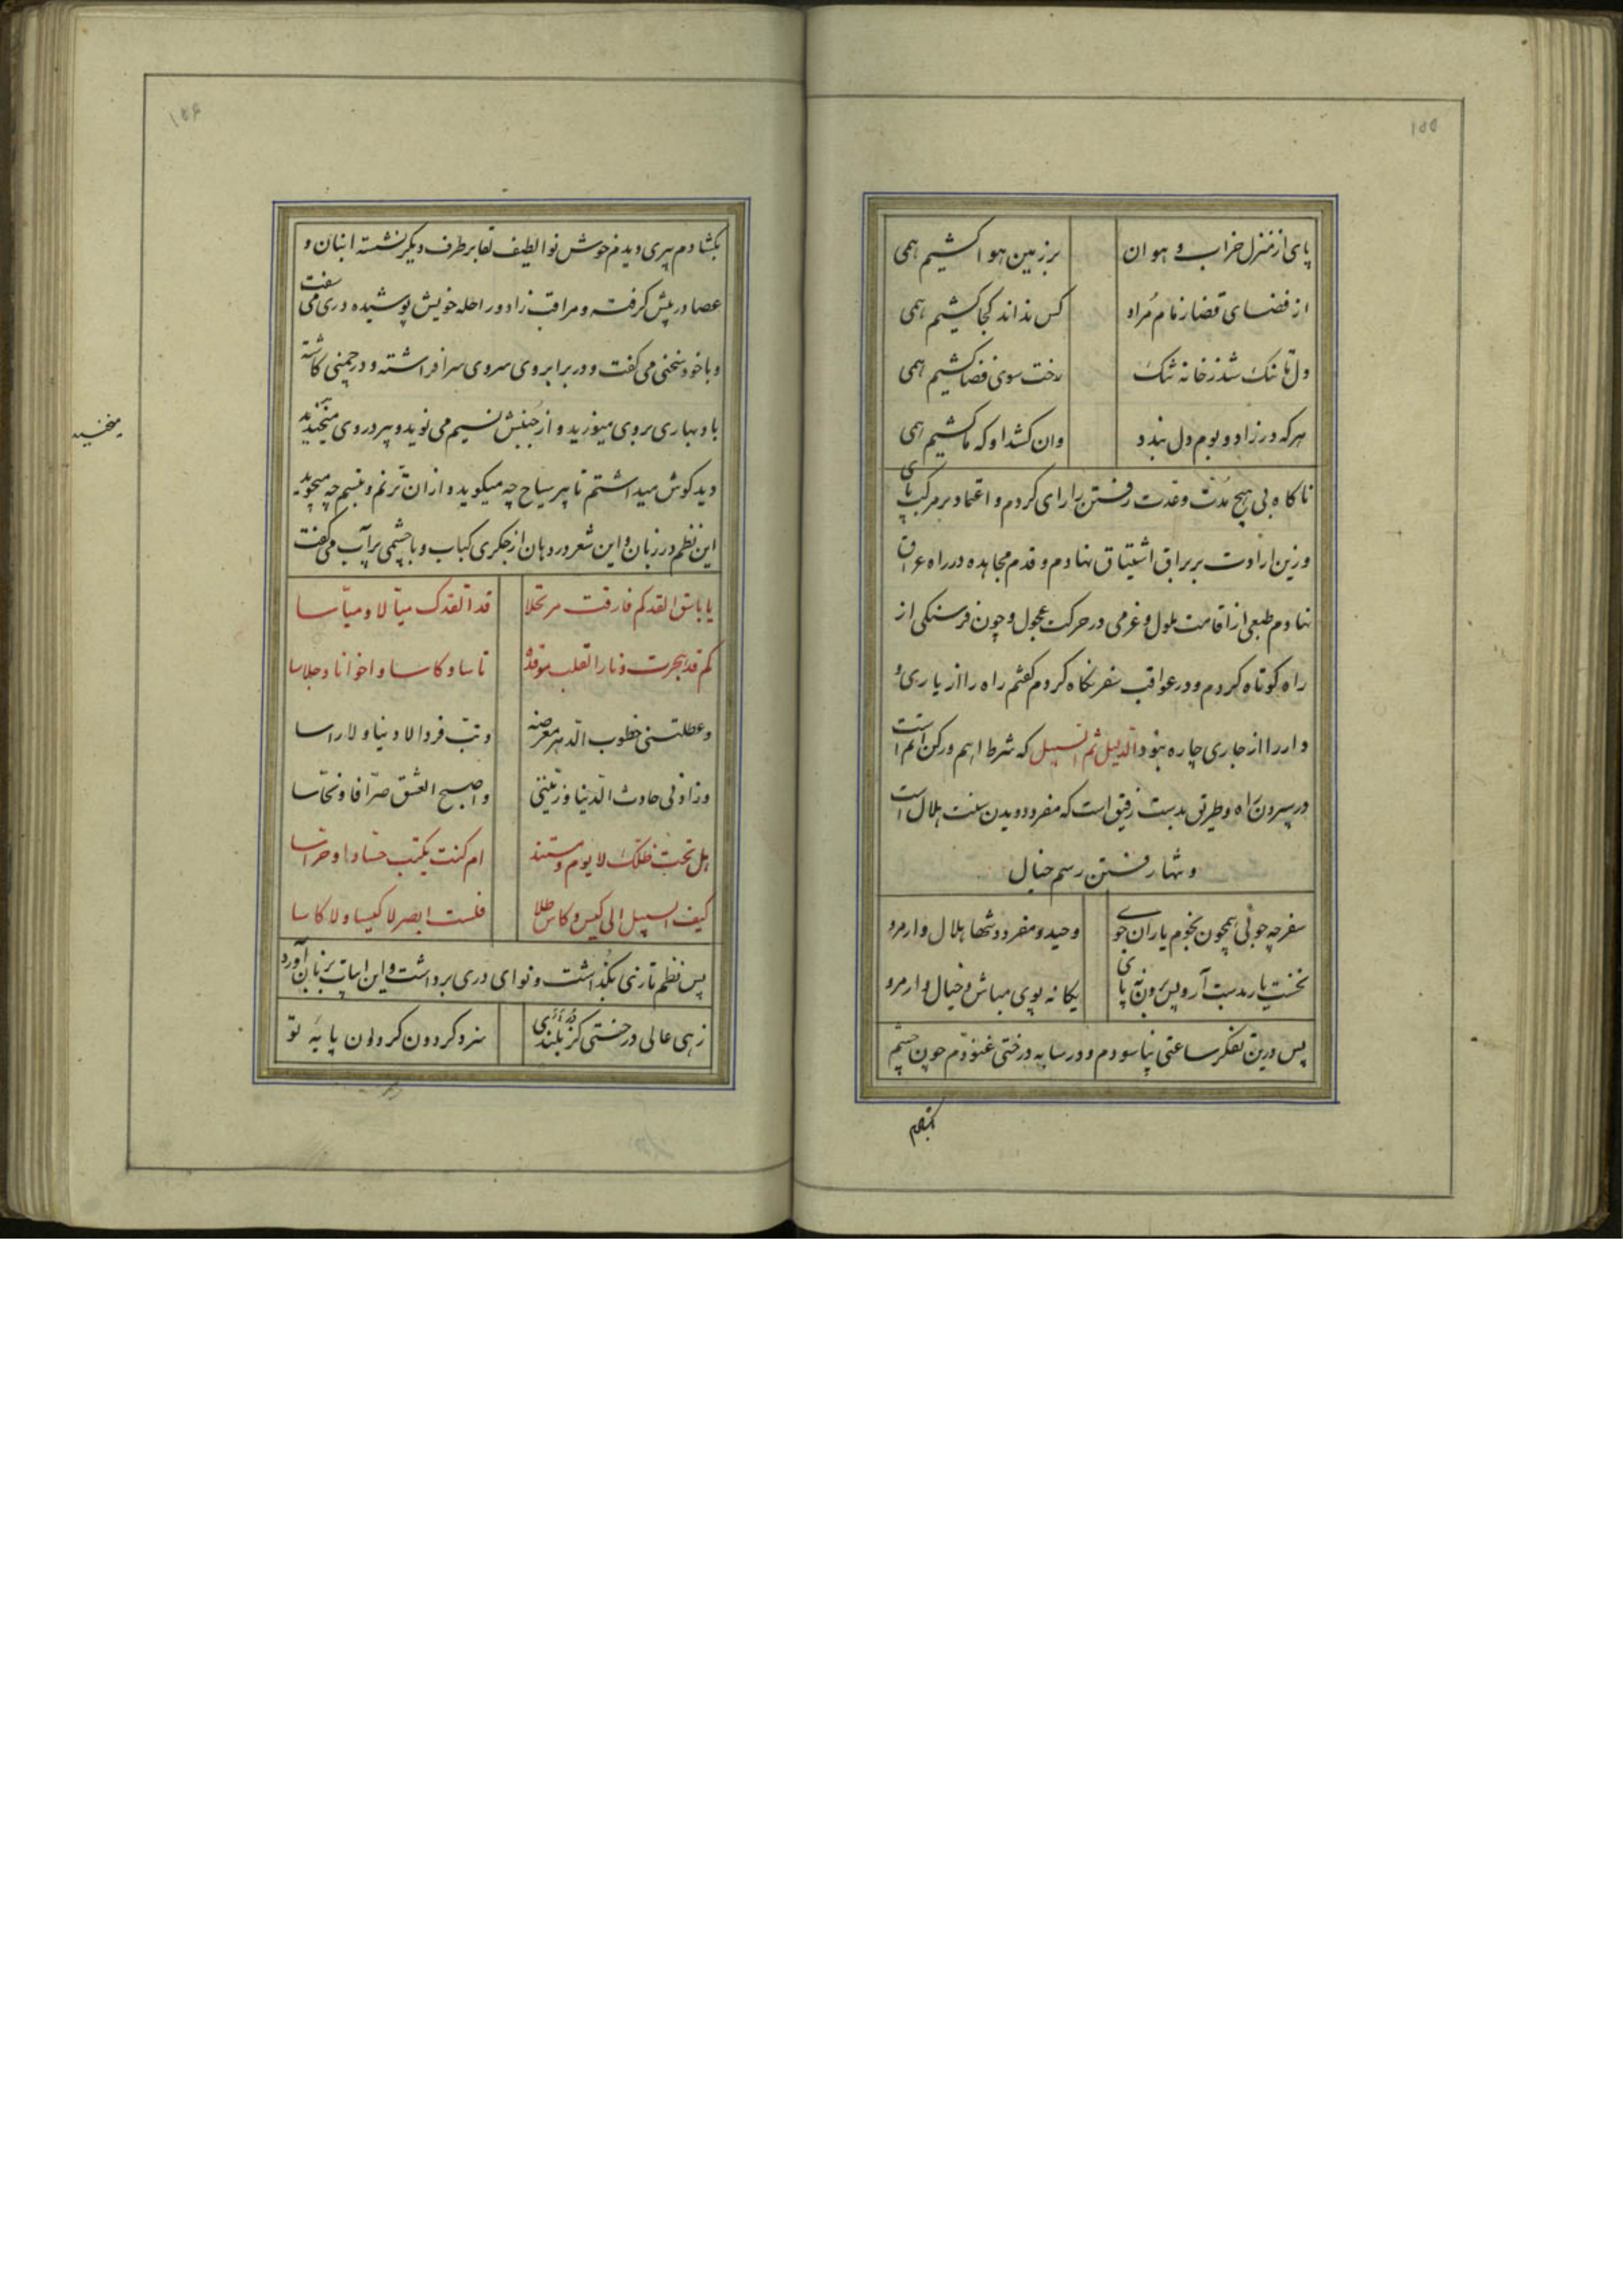 ۱۵۵
پای از منزل خراب و هوان برزمین هوا کشیم همی
از فضای قضا زمام مُراد کس نداند کجا کشیم همی
دل ما تنک شد ز خانه تنک رخت سوی فضا کشیم همی
هرکه در زاد و بوم دل بندد وان کشد او که ما کشیم همی
ناکاه بی هیچ مُدّت و عدت رفتن را رای کردم و اعتماد بر مرکب پای
وزین ارادت بر براق اشتیاق نهادم و قدم مجاهده در راه عراق
نهادم طبعی از اقامت ملول و عزمی در حرکت عجول و چون فرسنکی از
راه کوتاه کردم و در عواقب سفر نکاه کردم کفتم راه را از یاری و
دار را از جاری چاره نبود الدلیل ثم السبیل که شرط اهم و رکن اتم است
در سپردن راه و طریق بدست رفیق است که مفرد دویدن سنت هلال است
و تنها رفتن رسم خیال
سفر چه جوئی همچون نجوم یاران جوی وحید و مفرد و تنها هلال وار مرو
نخست یار بدست آر و پس برون نه پای یکانه پوی مباش و خیال وار مرو
پس درین تفکر ساعتی بیاسودم و در سایه درختی غنودم چون چشم
۱۵۶
بکشادم پیری دیدم خوش نوا لطیف لقا بر طرف دیکر نشسته انبان و
عصا در پیش کرفته و مراقب زاد و راحله خویش پوشیده دری می سفت
و با خود سخنی می کفت و در برابر وی سروی سرافراشته و در چمنی کاشته
باد بهاری بر وی میوزید و از جنبش نسیم می نوید و پیر در وی میخندید
دید کوش میداشتم تا پیر سیاح چه میکوید و از ان ترنم و تبسم چه میجوید
این نظم در زبان و این شعر در دهان از جکری کباب و با چشمی پر آب می کفت
یا باسق القد کم فارقت مرتحلا قد القدک میّالا و میّاسا
کم قد هجرت و نار القلب موقدة ناسا و کاسا و اخوانا و جلاسا
و عطلتنی خطوب الدهر معرضة وتب فردا لا دنیا و لا راسا
وزادنی حادث الدنیا وزیّنتی و اصبح العشق صرّافا و نخّاسا
هل تحت ظلّک لا یوم و مستند ام کنت یکتب حسّادا و حرّاسا
کیف السبیل الی کیس و کاس طلا فلست ابصر لا کیسا و لا کاسا
پس نظم تازی بکذاشت و نوای دری برداشت و این ابیات بر زبان آورد
زهی عالی درختی کز بلندی سزد کردون کردون پایه تو